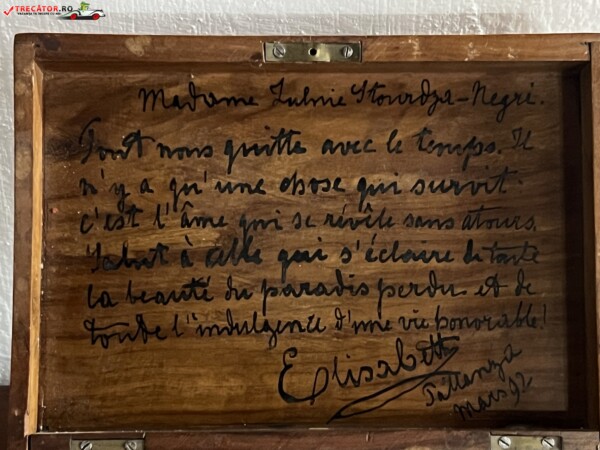 TRECĂTOR.RO
Madame Zulnie Stourdza-Negri.
Tout nous quitte avec le temps. Il
n'y a qu'une chose qui survit.
c'est l'âme qui se révèle sans atours.
Salut à celle qui s'éclaire de toute
la beauté du paradis perdu et de
toute l'indulgence d'une vie honorable!
Elisabeth
Pallanza
Mars 92